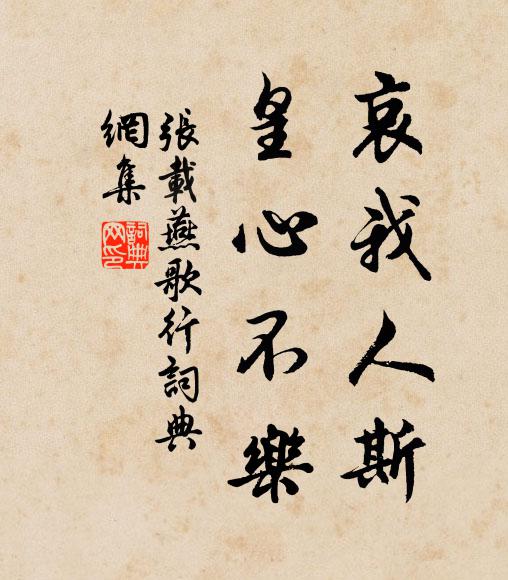 哀我人斯
皇心不樂
張載燕歌行詞典
網集
詞典
网印